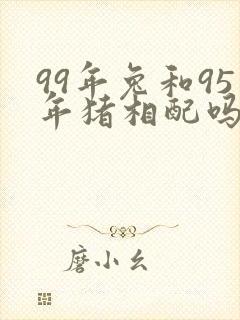 99年兔和95
年猪相配吗
磨小幺